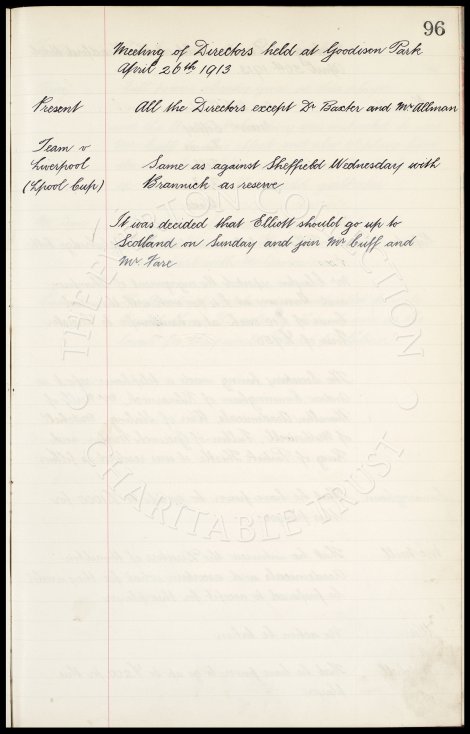 96
Meeting of Directors held at Goodison Park
April 26th, 1913
Present
All the Directors except Dr Baxter and Mr Allman
Team v
Liverpool
(L'pool Cup)
Same as against Sheffield Wednesday with
Brannick as reserve
It was decided that Elliott should go up to
Scotland on Sunday and join Mr Cuff and
Mr Fare
THE EVERTON COLLECTION
CHARITABLE TRUST